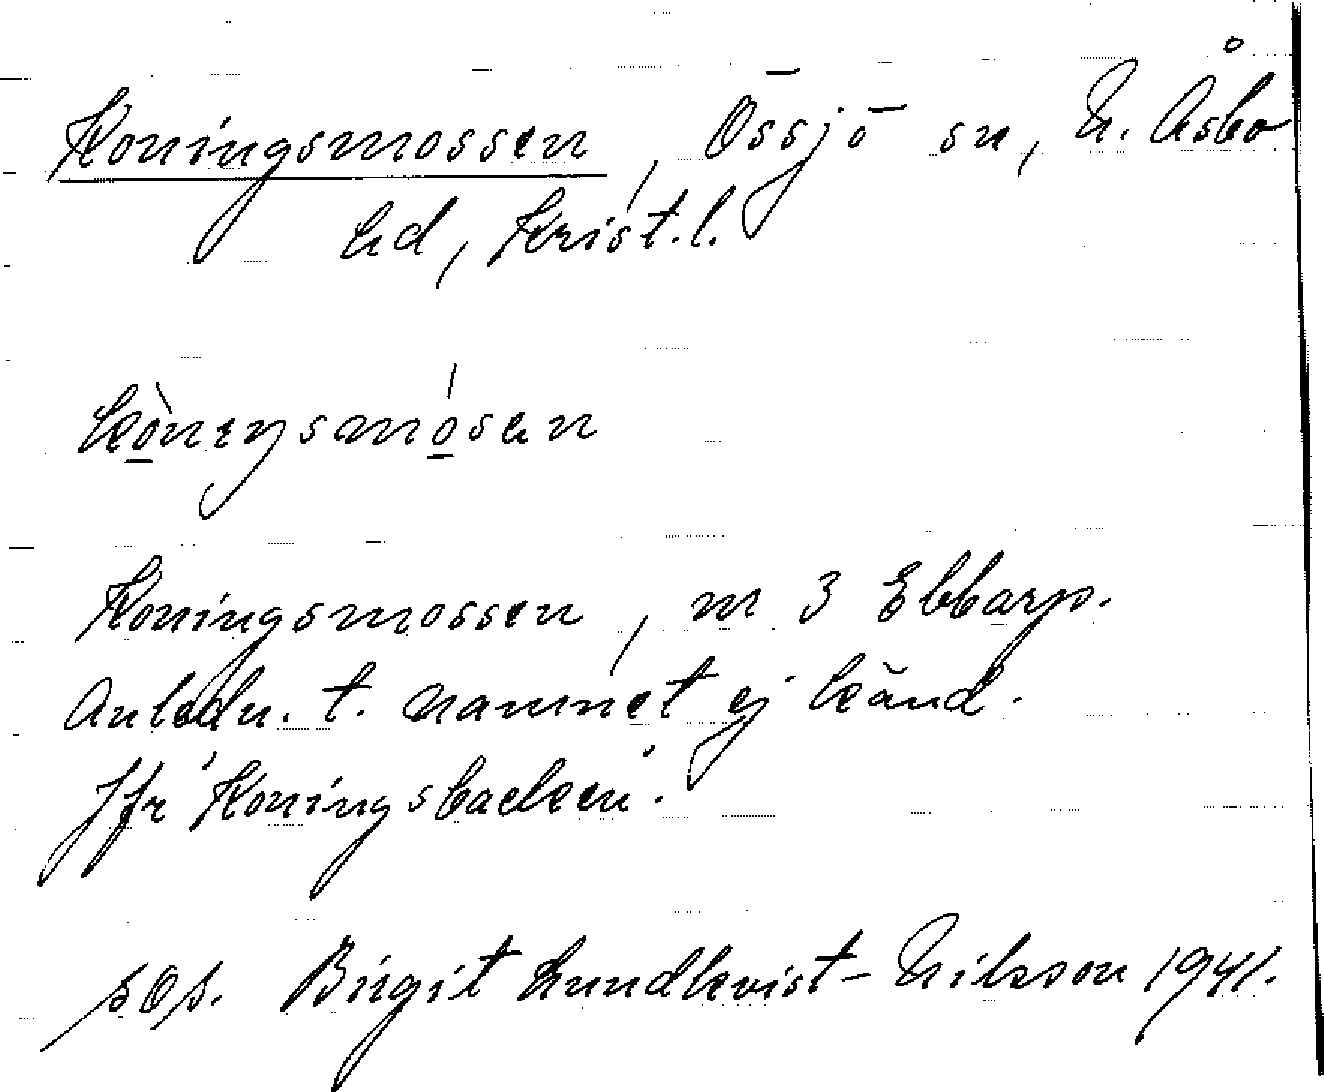 Koningsmossen, Össjö sn, N. Åsbo
hd, Krist.l.
Koningsmossen, m 3 Ebbarp.
Anledn. t. namnet ej känd.
Jfr 'Koningsbacken'.
Birgit Lundkvist-Nilsson 1941.